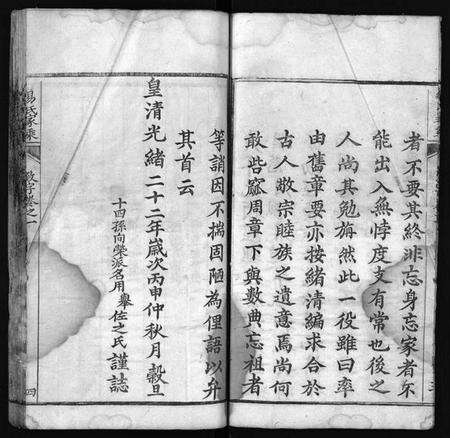 者不要其終非忘身忘家者不
能出入無悖度支有常也後之
人尚其勉旃然此一役雖曰率
由舊章要亦按緒清編求合於
古人敬宗睦族之遺意焉尚何
敢呰窳周章下與數典忘祖者
等誚因不揣固陋為俚語以弁
其首云
皇清光緒二十二年歲次丙申仲秋月穀旦
十四孫向榮派名用舉佐之氏謹誌
楊氏家乘
卷之一
四